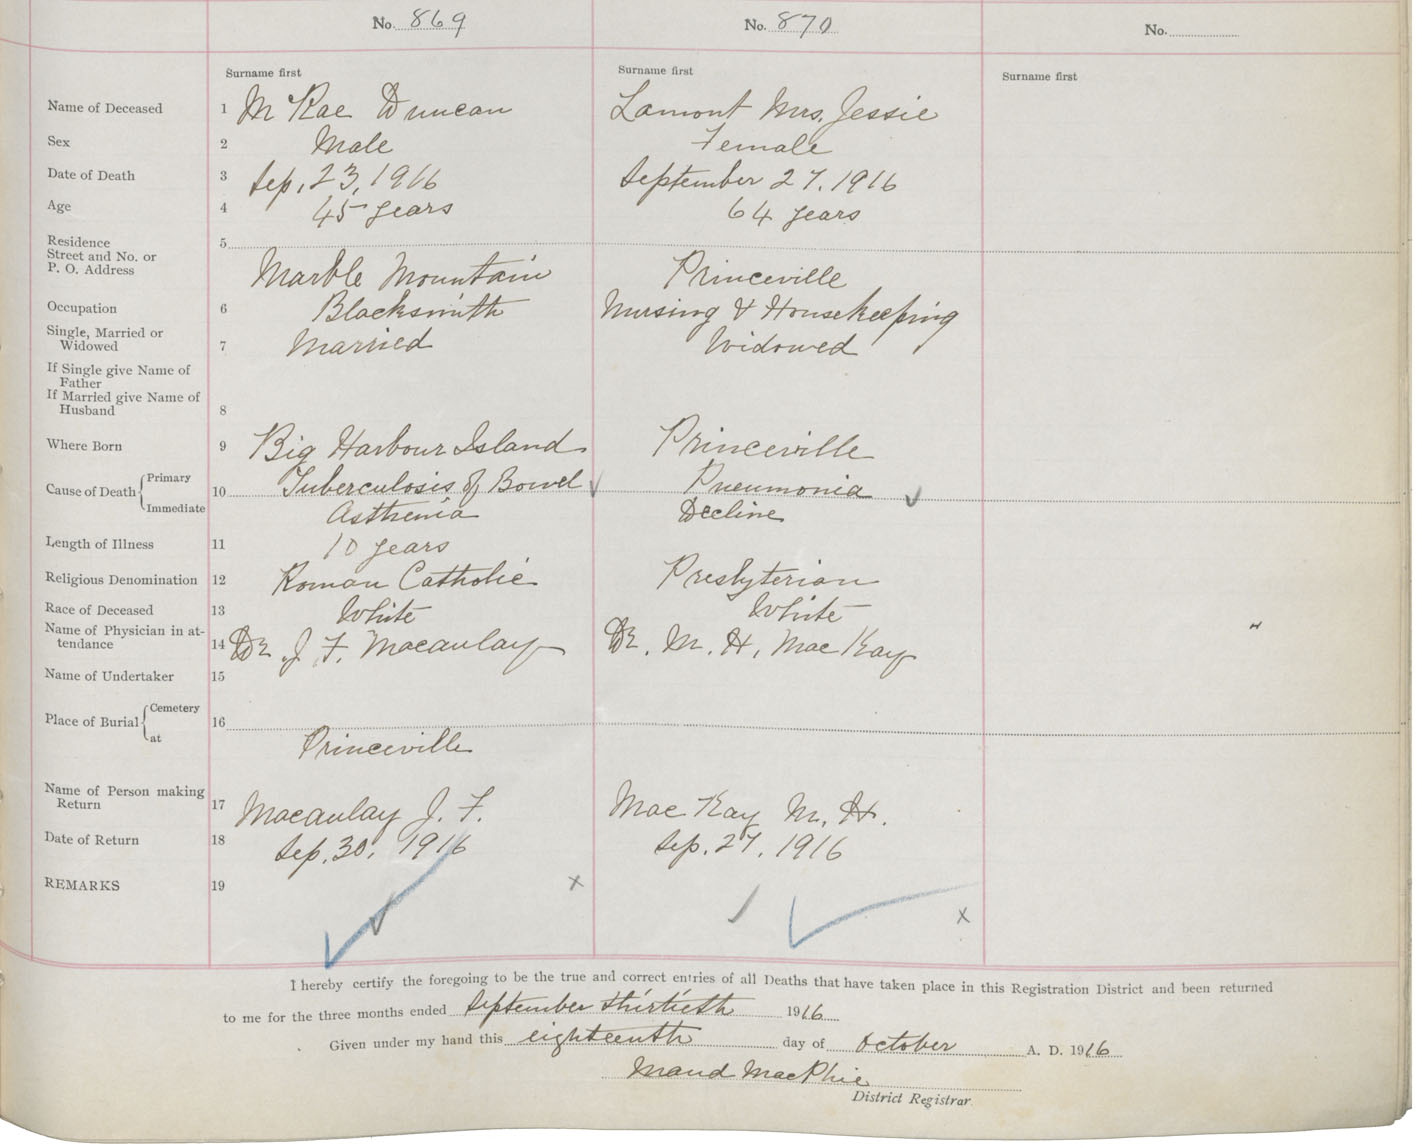 No. 869 No. 870 No.
Surname first Surname first Surname first
Name of Deceased 1 McRae Duncan Lamont Mrs. Jessie
Sex 2 Male Female
Date of Death 3 Sep. 23, 1916 September 27. 1916
Age 4 45 years 64 years
Residence 5
Street and No. or
P. O. Address Marble Mountain Princeville
Occupation 6 Blacksmith Nursing & Housekeeping
Single, Married or
Widowed 7 Married Widowed
If Single give Name of
Father
If Married give Name of
Husband 8
Where Born 9 Big Harbour Island Princeville
Cause of Death { Primary 10 Tuberculosis of Bowel Pneumonia
Immediate Asthenia Decline
Length of Illness 11 10 years
Religious Denomination 12 Roman Catholic Presbyterian
Race of Deceased 13 White White
Name of Physician in at-
tendance 14 Dr. J. F. Macaulay Dr. M. H. MacKay
Name of Undertaker 15
Place of Burial { Cemetery 16
at Princeville
Name of Person making
Return 17 Macaulay J. F. MacKay M. H.
Date of Return 18 Sep. 30, 1916 Sep. 27. 1916
REMARKS 19 x x
I hereby certify the foregoing to be the true and correct entries of all Deaths that have taken place in this Registration District and been returned
to me for the three months ended September thirtieth 1916
Given under my hand this eighteenth day of October A. D. 1916
Maud MacPhie
District Registrar.